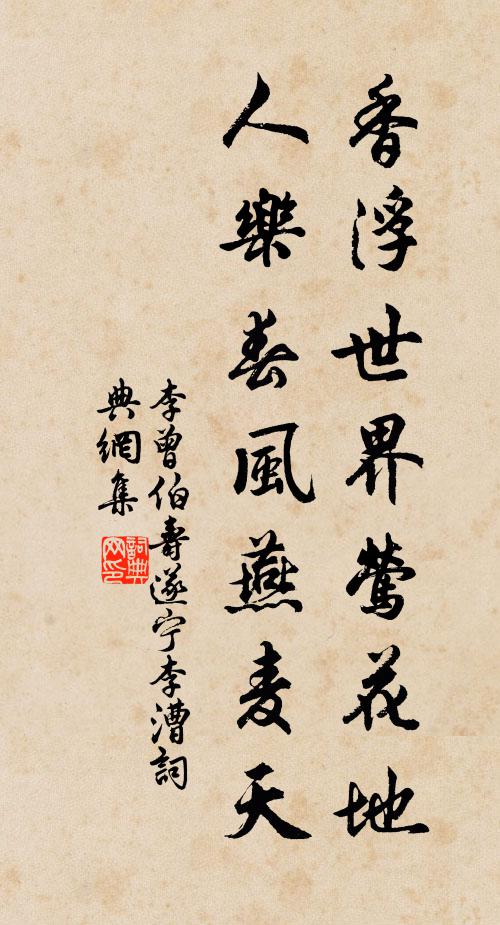 香浮世界鶯花地
人樂春風燕麦天
李曾伯壽遂宁李漕詞
典網集
詞典
网印